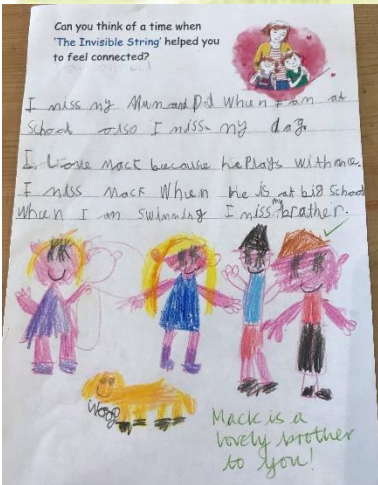 Can you think of a time when
'The Invisible String' helped you
to feel connected?
I miss my Mum and Dad When I am at
School also I miss my dog.
I Love Mack because he Plays with me.
I miss Mack When he is at big School
When I am Swimming I miss my brather.
Woof
Mack is a
lovely brother
to you!